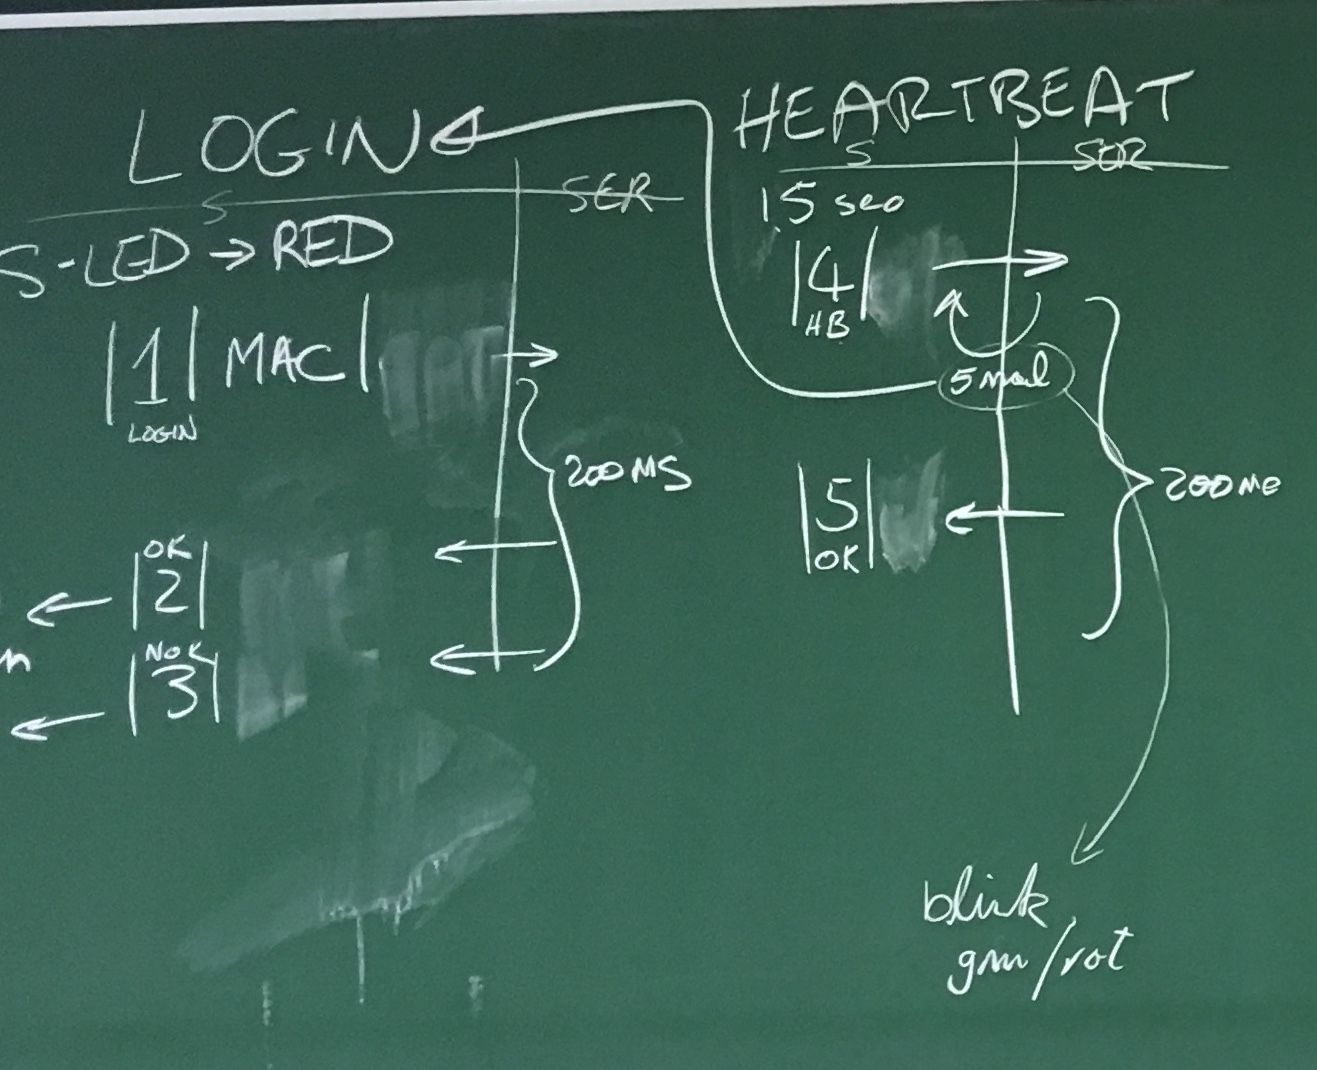 LOGIN
S SER
S-LED → RED
|1| MAC|
LOGIN
200MS
OK
|2|
NOK
|3|
HEARTBEAT
S SER
15 sec
|4|
HB
5 mal
|5|
OK
200ms
blink
grün/rot